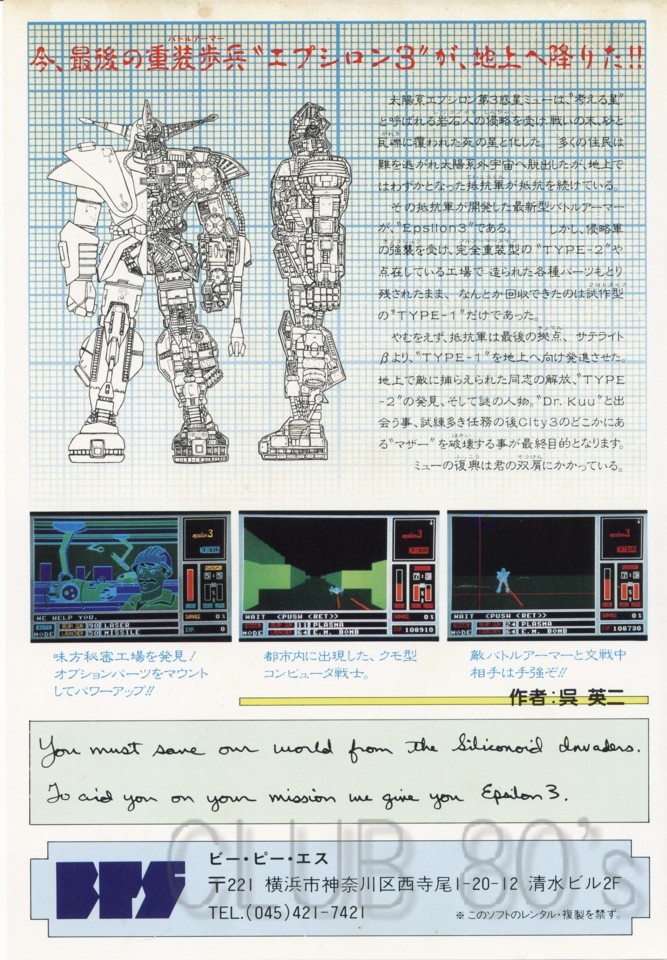 バトルアーマー
今、最後の重装歩兵“エプシロン3”が、地上へ降りた!!
太陽系エプシロン第3惑星ミューは、“考える星”
と呼ばれる岩石人の侵略を受け、戦いの末、砂と
瓦礫に覆われた死の星と化した。 多くの住民は
難を逃がれ太陽系外宇宙へ脱出したが、地上で
はわずかとなった抵抗軍が抵抗を続けている。
その抵抗軍が開発した最新型バトルアーマー
が、“Epsilon3”である。 しかし、侵略軍
の強襲を受け、完全重装型の“TYPE-2”や
点在している工場で 造られた各種パーツもとり
残されたまま、なんとか回収できたのは試作型
の“TYPE-1”だけであった。
やむをえず、抵抗軍は最後の拠点、サテライト
βより、“TYPE-1”を地上へ向け発進させた。
地上で敵に捕らえられた同志の解放、“TYPE
-2”の発見、そして謎の人物、“Dr. Kuu”と出
会う事、試練多き任務の後City3のどこかにあ
る“マザー”を破壊する事が最終目的となります。
ミューの復興は君の双肩にかかっている。
epsilon3
WE HELP YOU.
LASER
MODE
MISSILE
0
epsilon3
WAIT <PUSH <RET>>
PLASMA
MODE
BOMB
108910
epsilon3
WAIT <PUSH <RET>>
PLASMA
MODE
BOMB
108730
味方秘密工場を発見!
オプションパーツをマウント
してパワーアップ!!
都市内に出現した、クモ型
コンピュータ戦士。
敵バトルアーマーと交戦中
相手は手強ぞ!!
作者:呉 英二
You must save our world from the Siliconoid Invaders.
To aid you on your mission we give you Epsilon 3.
CLUB 80's
BPS
ビー・ピー・エス
〒221 横浜市神奈川区西寺尾1-20-12 清水ビル2F
TEL.(045)421-7421
※このソフトのレンタル・複製を禁ず。